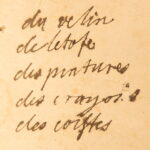 du velin
de letofe
des pintures
des crayons
des coiffes